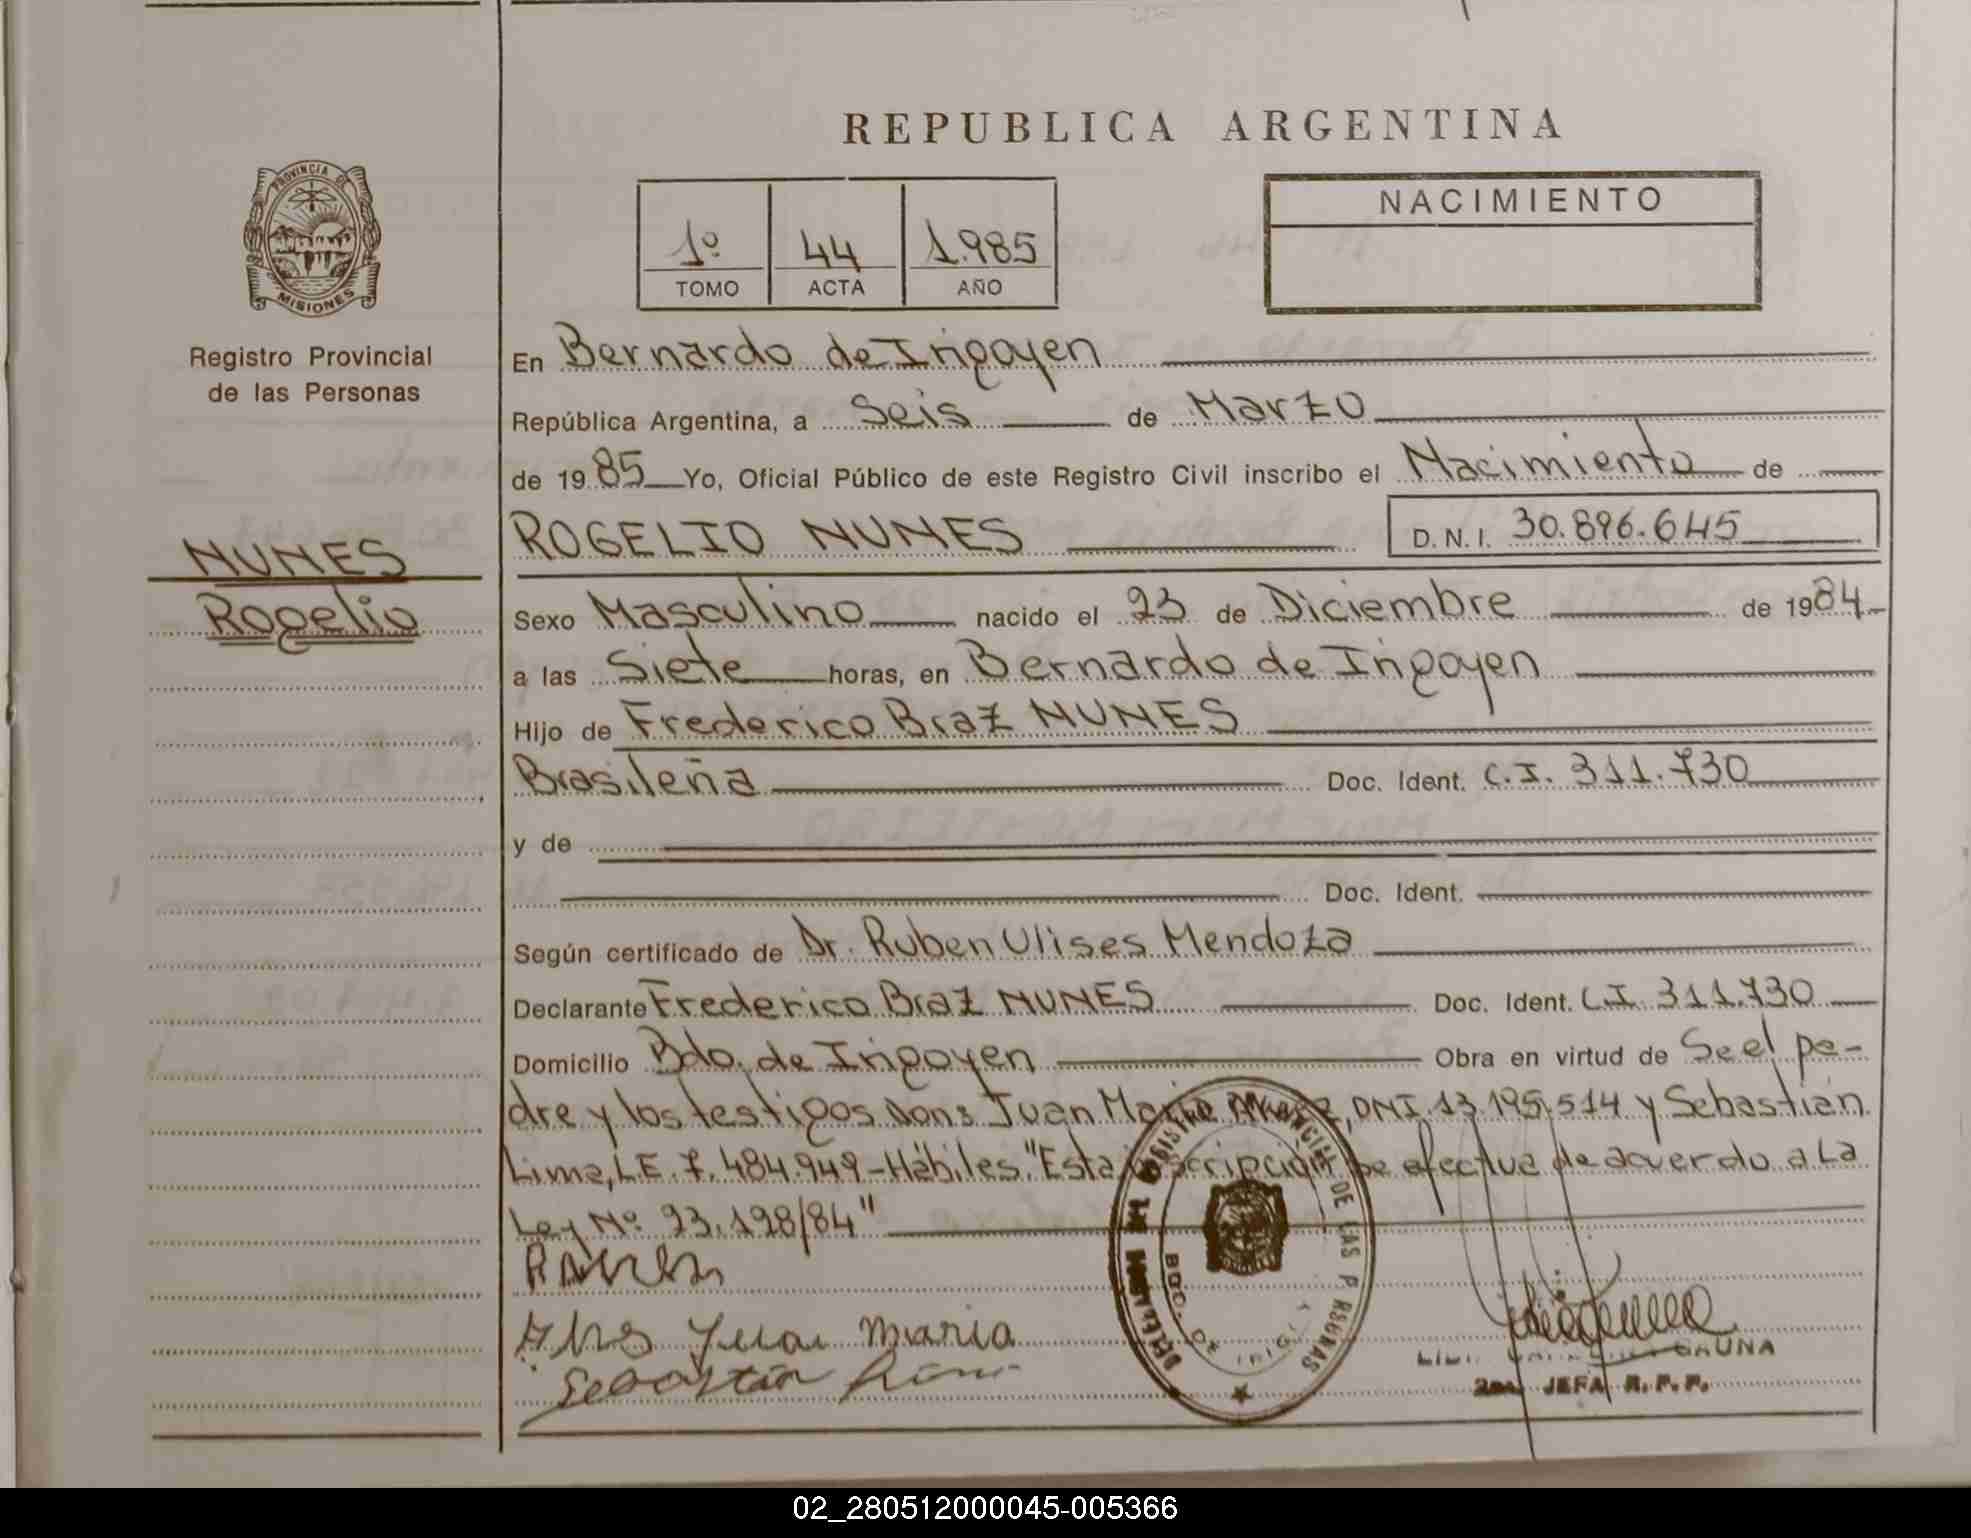 REPUBLICA ARGENTINA
PROVINCIA DE
MISIONES
Registro Provincial
de las Personas
1º 44 1.985
TOMO ACTA AÑO
NACIMIENTO
En Bernardo de Irigoyen
República Argentina, a Seis de Marzo
de 1985 Yo, Oficial Público de este Registro Civil inscribo el Nacimiento de
NUNES
Rogelio
ROGELIO NUNES D.N.I. 30.896.645
Sexo Masculino nacido el 23 de Diciembre de 1984
a las Siete horas, en Bernardo de Irigoyen
Hijo de Frederico Braz NUNES
Brasileña Doc. Ident. C.I. 311.730
y de
Doc. Ident.
Según certificado de Dr. Ruben Ulises Mendoza
Declarante Frederico Braz NUNES Doc. Ident. C.I. 311.730
Domicilio Bdo. de Irigoyen Obra en virtud de Se el pa-
dre y los testigos Dons Juan Maria DNI. 13.195.514 y Sebastián
Lima, L.E. 7.484.949-Hábiles."Esta inscripción se efectua de acuerdo a La
Ley Nº 23.198/84"
Juan Maria
Sebastian Lima
REGISTRO PROVINCIAL DE LAS PERSONAS
BDO. DE IRIGOYEN
JEFA R.P.P.
02_280512000045-005366